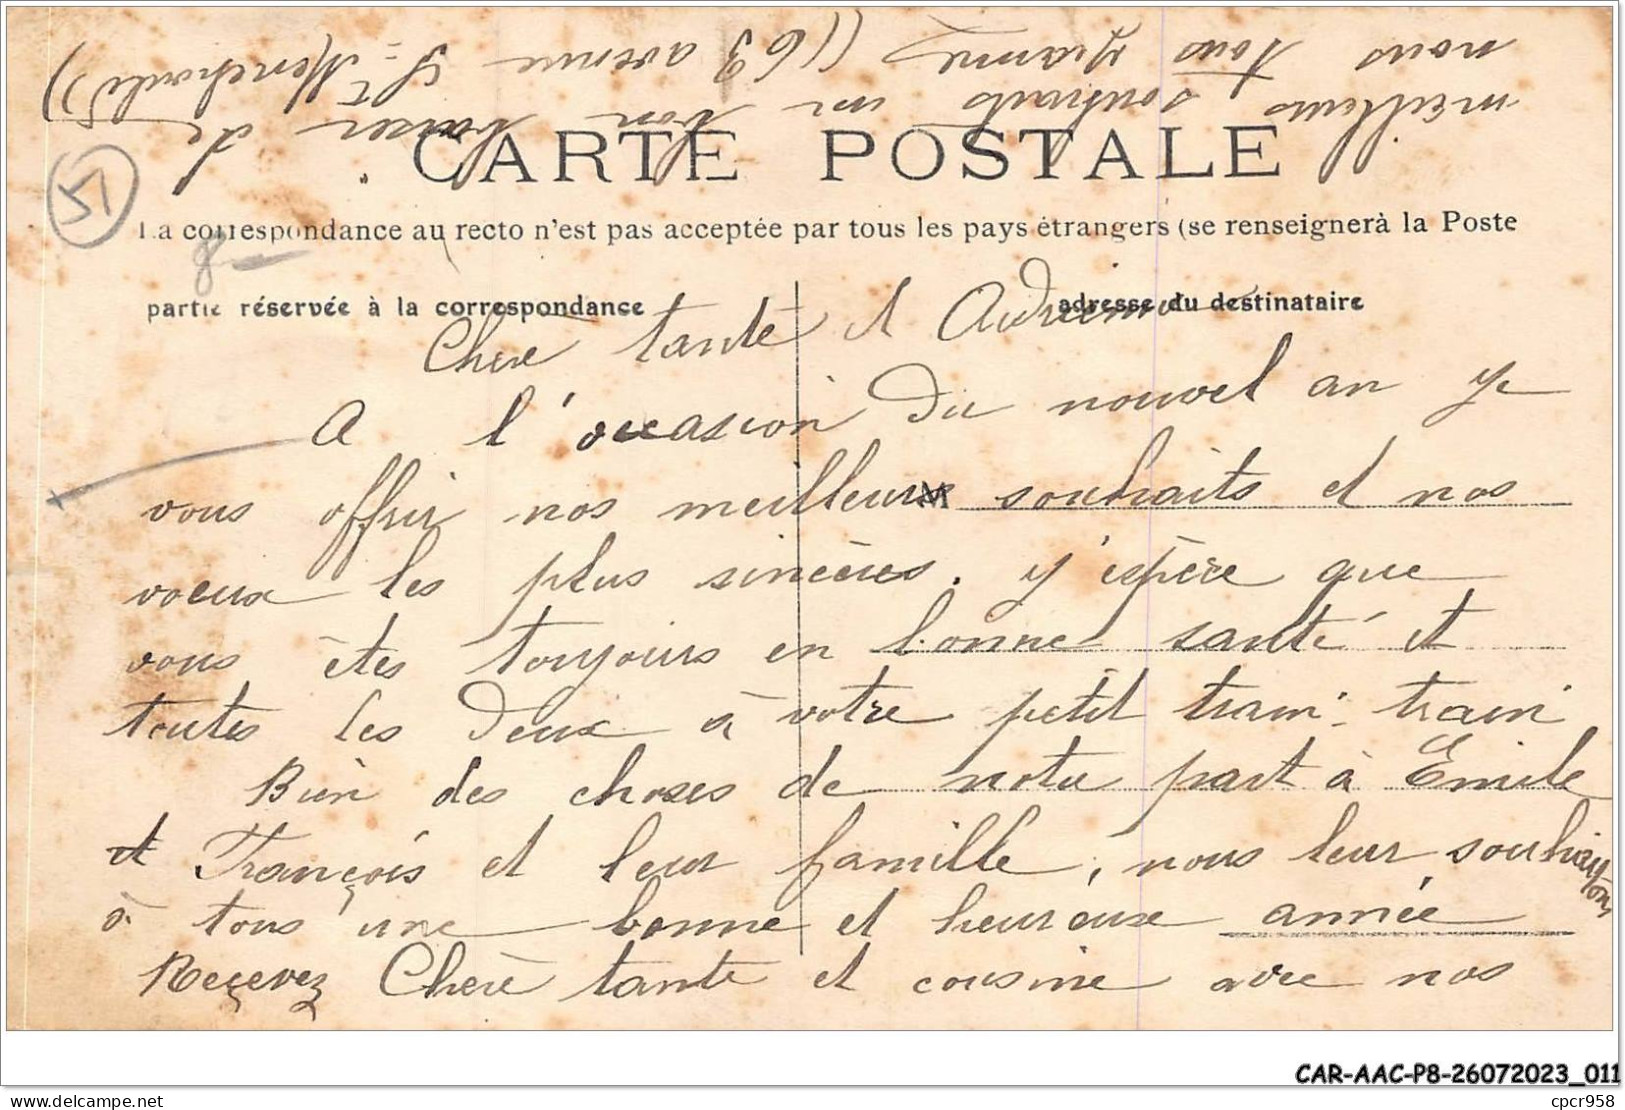 CARTE POSTALE
La correspondance au recto n'est pas acceptée par tous les pays étrangers (se renseignerà la Poste
partie réservée à la correspondance
adresse du destinataire
51
8
Chère tante et Adrienne
A l'occasion du nouvel an je
vous offrir nos meilleurs souhaits et nos
voeux les plus sincères. j'espère que
vous êtes toujours en bonne santé et
toutes les deux à votre petit train-train
Bien des choses de notre part à Emile
et François et leur famille, nous leur souhaitons
à tous une bonne et heureuse année
Reçevez Chère tante et cousine avec nos
meilleurs souhaits un bon baiser de
nous tous Jeanne (163 avenue St-Menehould)
CAR-AAC-P8-26072023_011
cpcr958